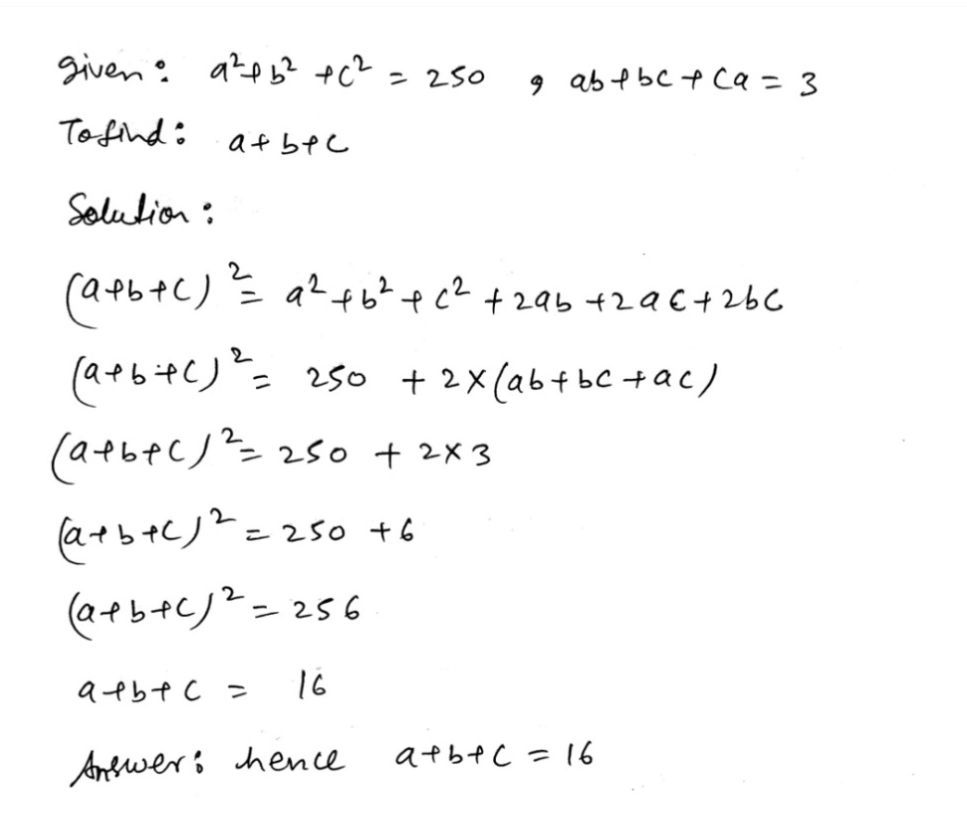 given: a²+b²+c² = 250 , ab+bc+ca = 3
To find: a+b+c
Solution:
(a+b+c)² = a²+b²+c²+2ab+2ac+2bc
(a+b+c)² = 250 + 2×(ab+bc+ac)
(a+b+c)² = 250 + 2×3
(a+b+c)² = 250 + 6
(a+b+c)² = 256
a+b+c = 16
Answer: hence a+b+c = 16